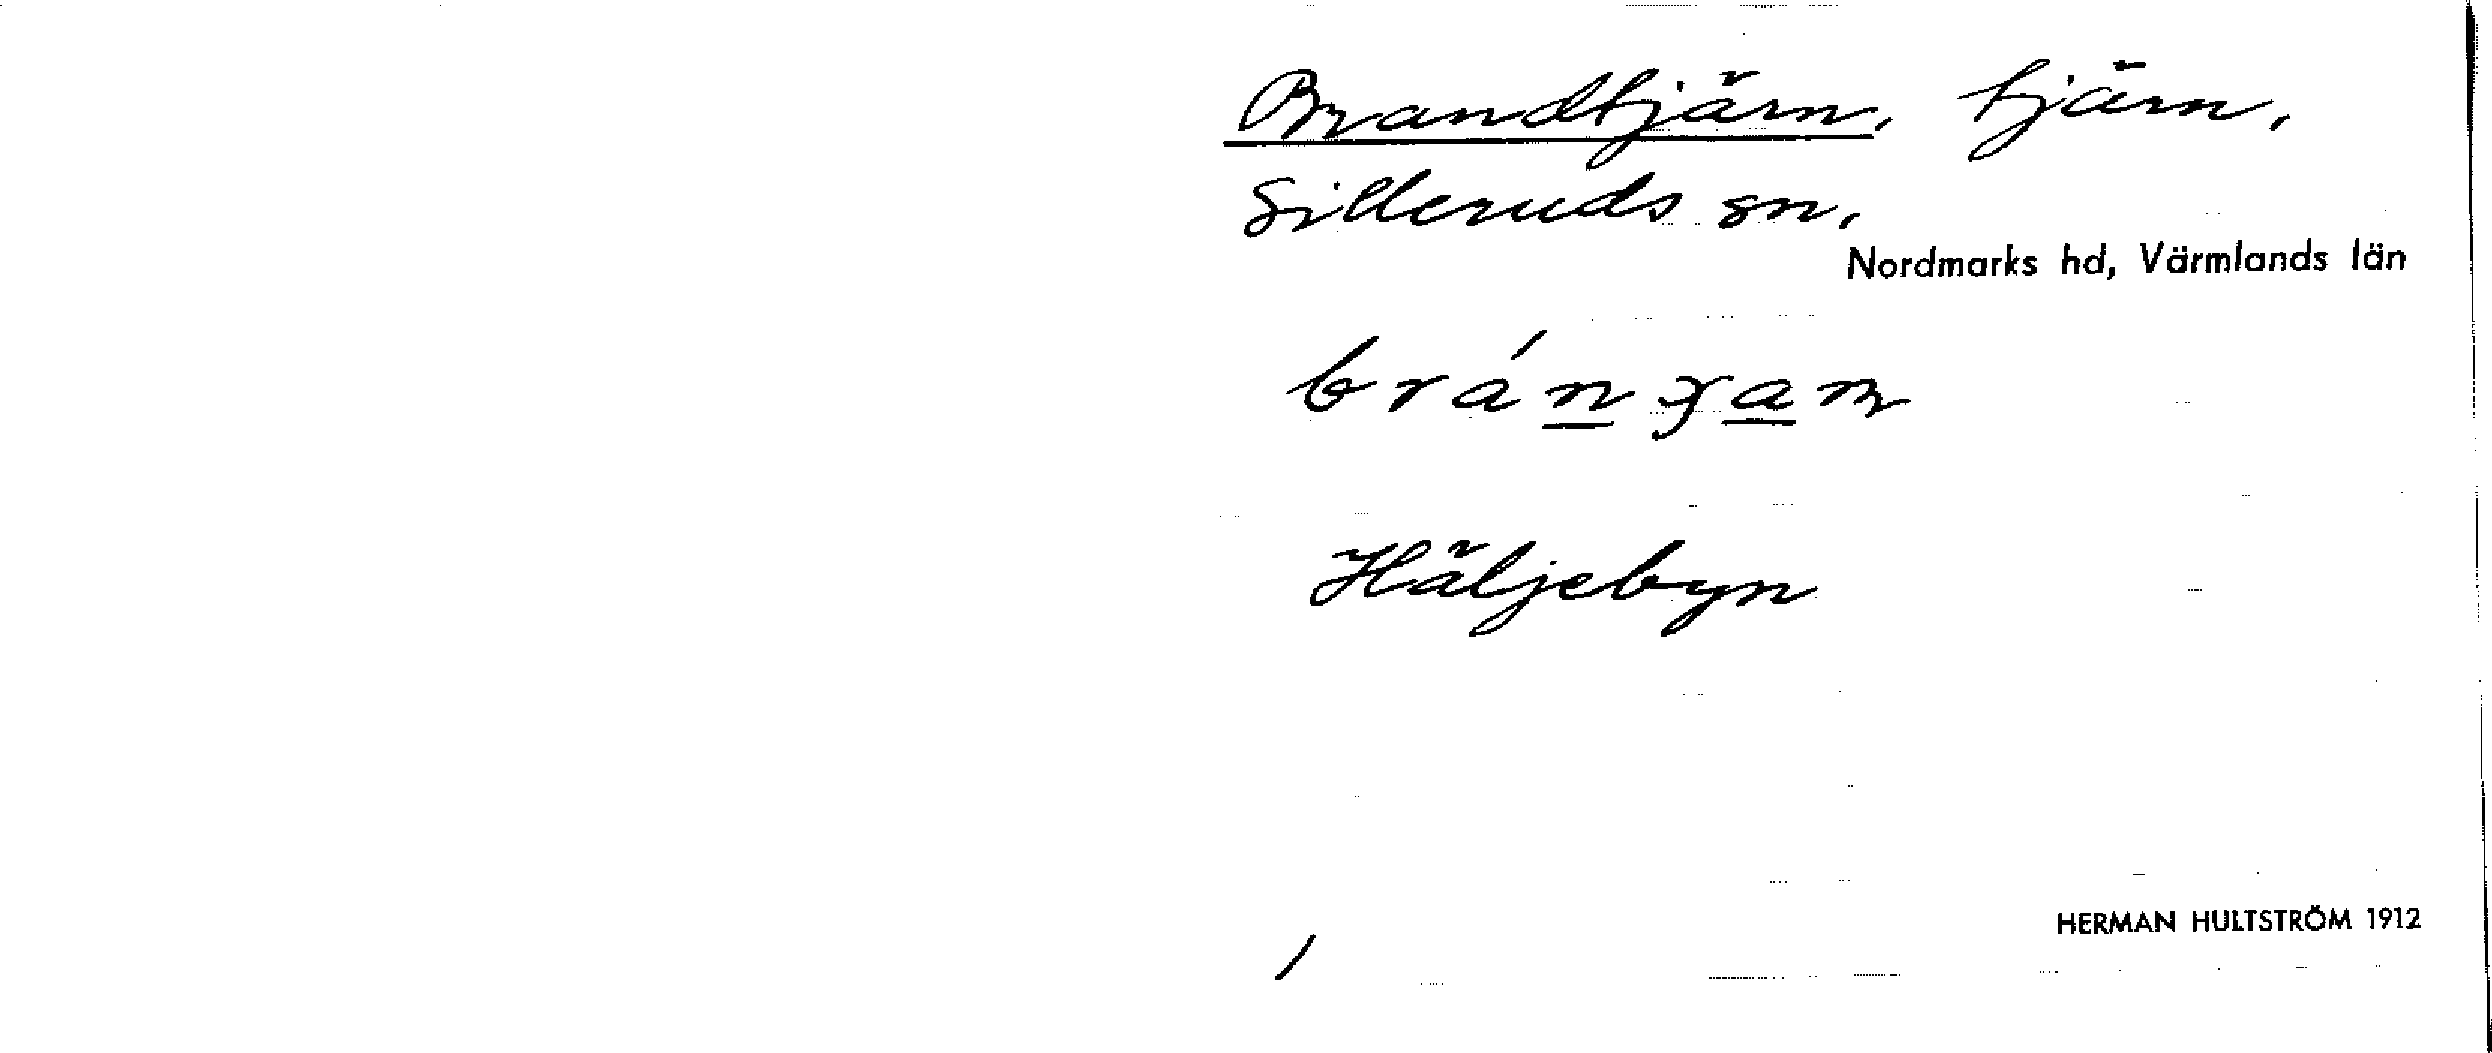 Brandtjärn, tjärn,
Silleruds sn,
Nordmarks hd, Värmlands län
Häljebyn
HERMAN HULTSTRÖM 1912